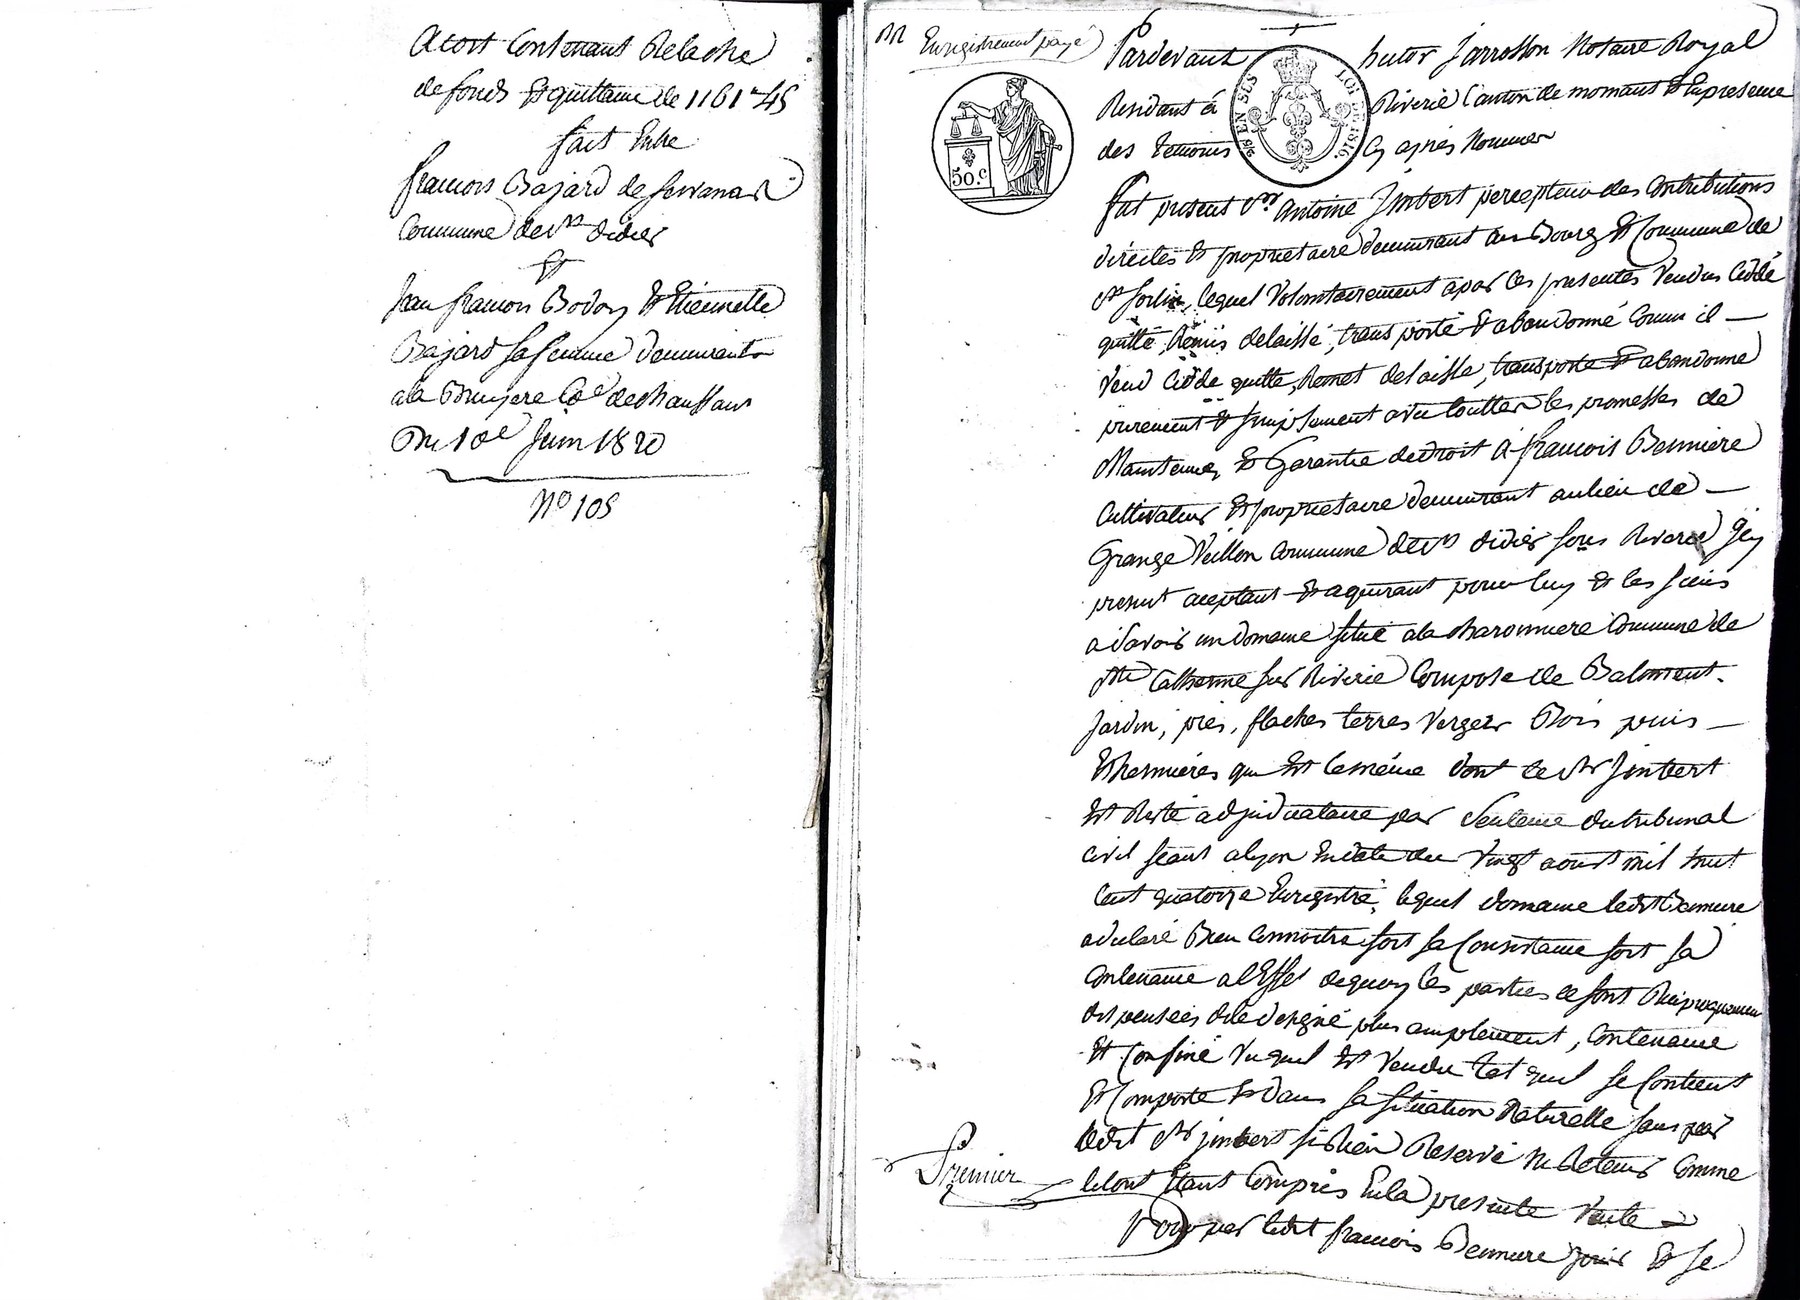 Acort Contenant Relache
de fonds Et quittance de 1161 45
fait Entre
francois Bajard de
Commune de st didier
Et
Jean francois Bodoy Et Etiennette
Bajard sa femme demeurants
ala Bruyere Cne de chaussan
Du 10e Juin 1820
No 105
Enregistrement payé
50.c
EN SUS
LOI DE 1816.
Pardevant hutor Jarrosson Notaire Royal
Residant á Riverie Canton de mornant Et En presence
des temoins Cy après Nommer
fut present sr antoine Jmbert percepteur des Contributions
directes Et proprietaire demeurant au Bourg Et Commune de
st sorlin, lequel Volontairement a par Ces presentes Vendus Cédé
quitté, Remis delaissé, transporté Et abandonné Comm il —
Vend Cède quitte, Remet delaisse, transporte Et abandonne
purement Et simplement avec touttes les promesses de
Maintenue, Et Garantie de droit á francois Bernniere
Cultivateur Et proprietaire demeurant au lieu de —
Grange Veillon Commune de st didier sous Riverie Jcy
present aceptant Et aquerant pour luy Et les siens
a savoir un domaine situé ala charonniere Commune de
ste Catherine sur Riverie Composé de Batiment.
Jardin, près, flaches terres Verger Bois puis —
Et hermières qui Est le même dont le sr Jmbert
Est Resté adjudicataire par Sentence du tribunal
civil séant a lyon En date du Vingt aoust mil huit
Cent quatorze Enregistré, lequel domaine ledit Bernniere
a declaré Bien Connoitre soit sa Consistance soit sa
Contenance a lEffet de quoy les parties se sont Reciproquement
dispensées de le designé plus amplement, Contenance
Et Confiné Vu quil Est Vendu tel quil se Contient
Et Comporte Et dans sa situation Naturelle sans par
ledit sr jmbert si Rien Reservé Ni Retenir Comme
le tout Etant Compris En la presente Vente
Pour par ledit francois Bernniere jouir Et se
Premier